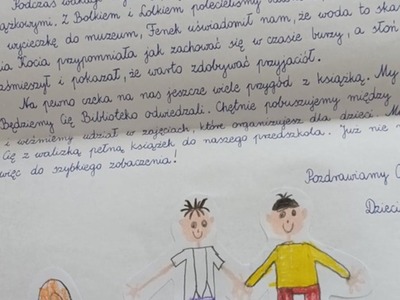 Podczas wakacji
ązkowymi. Z Bolkiem i Lolkiem polecieliśmy
wycieczkę do muzeum, Fenek uświadomił nam, że woda to ska
ia Kocia przypomniała jak zachować się w czasie burzy, a słoń
zśmieszył i pokazał, że warto zdobywać przyjaciół.
Na pewno czeka na nas jeszcze wiele przygód z książką. My
Będziemy Cię Biblioteko odwiedzali. Chętnie pobuszujemy między
i weźmiemy udział w zajęciach, które organizujesz dla dzieci. M
Cię z walizką pełną książek do naszego przedszkola. Już nie m
więc do szybkiego zobaczenia!
Pozdrawiamy C
Dzieci